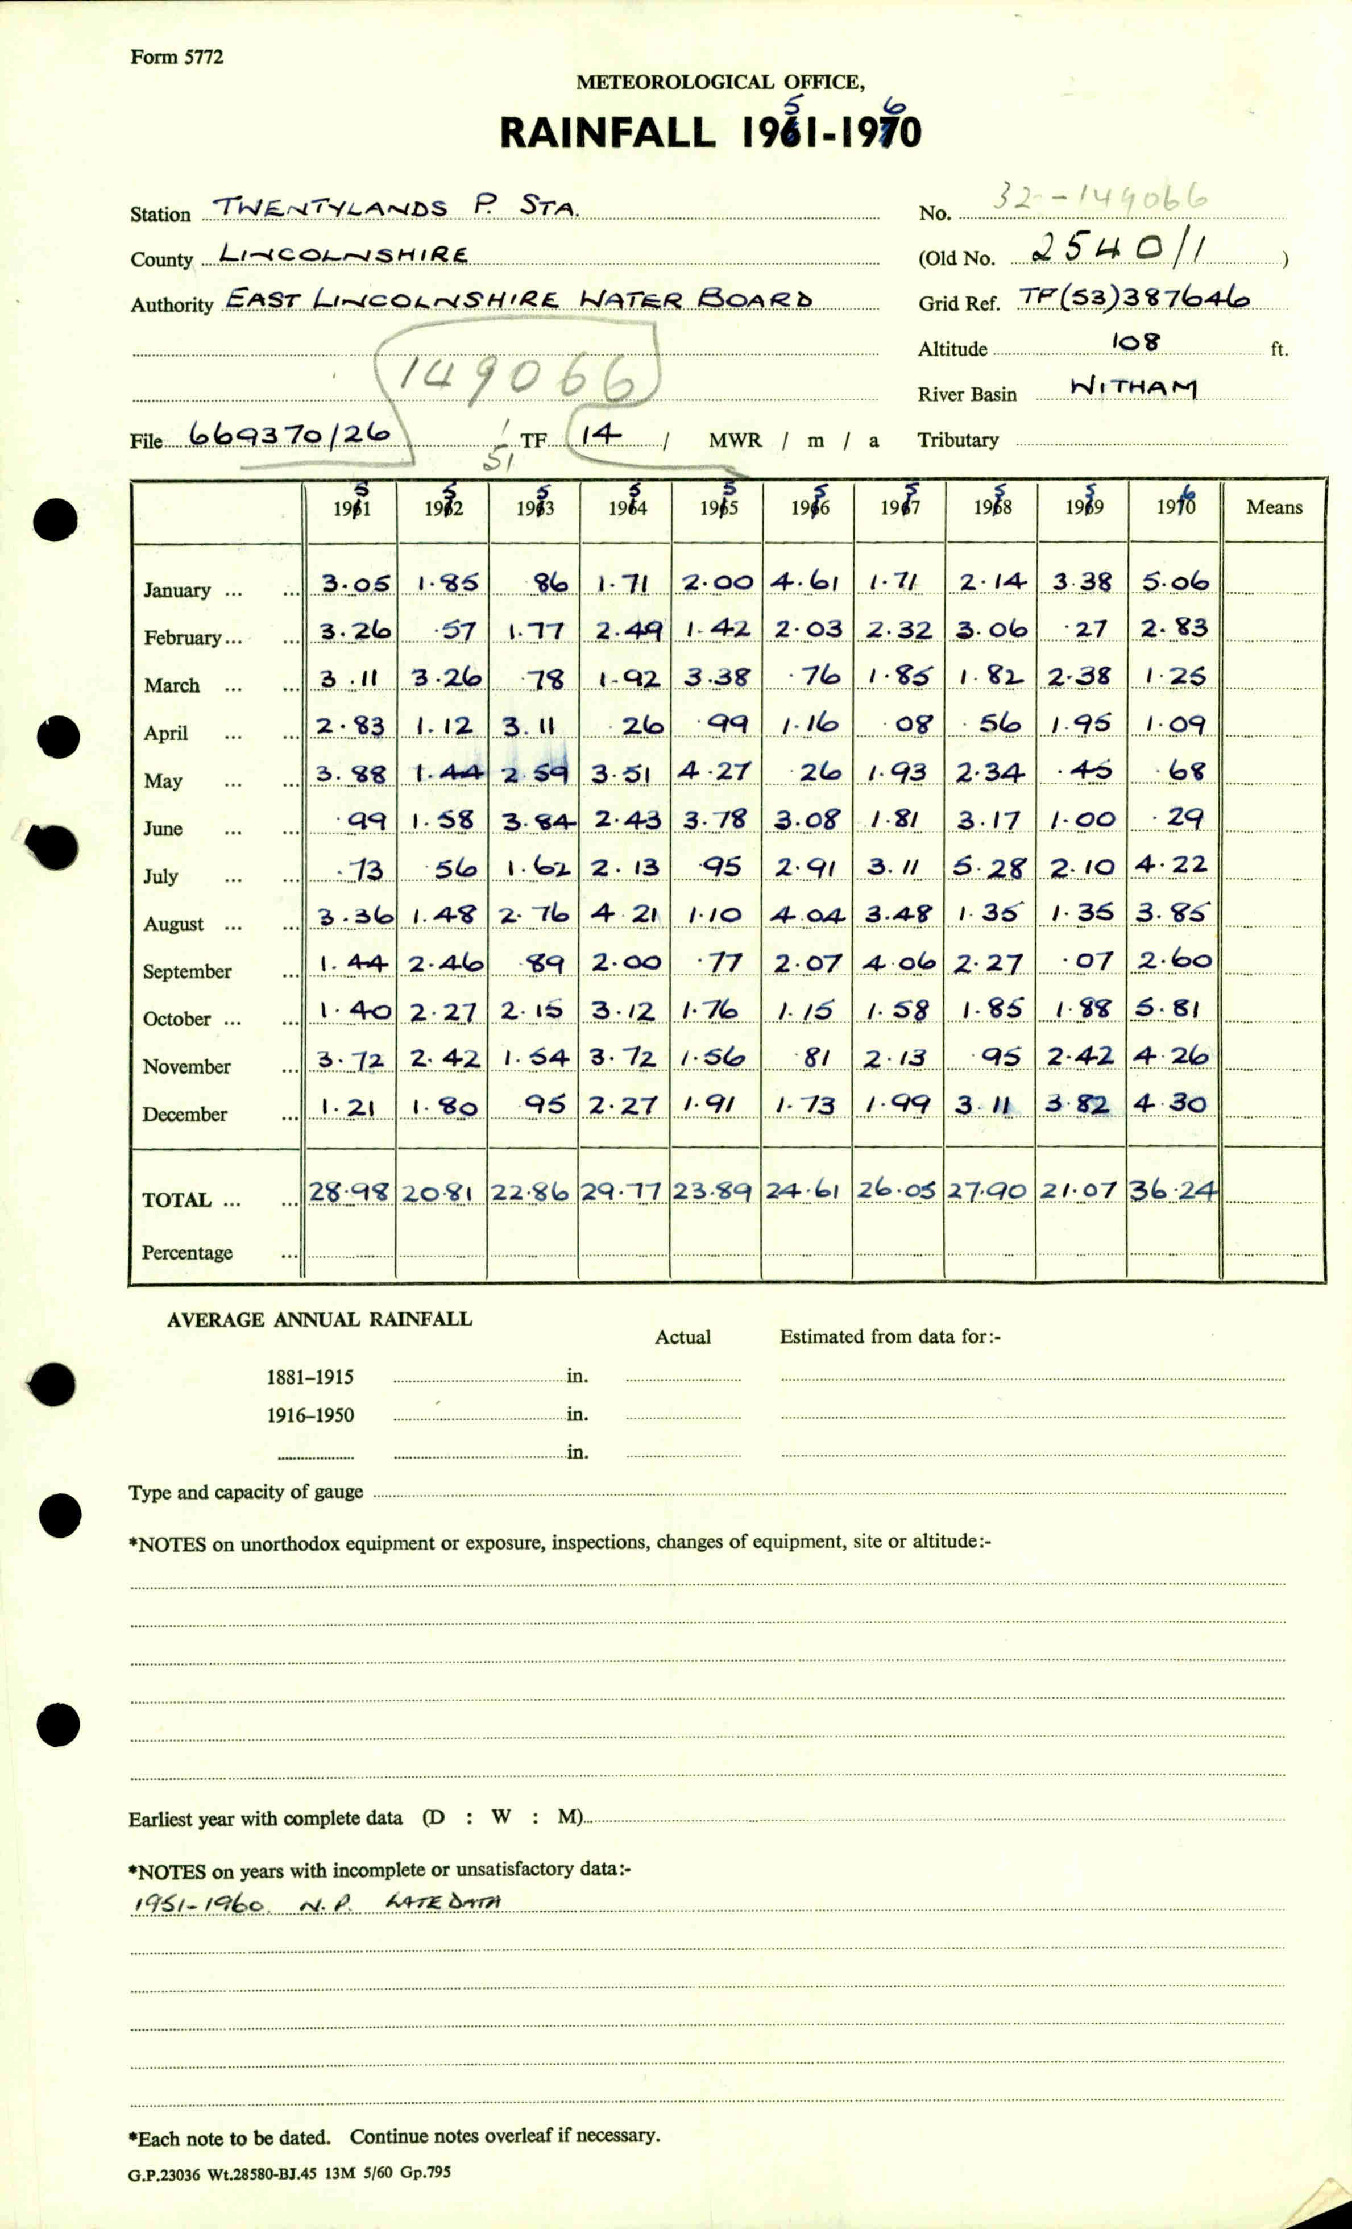 Form 5772
METEOROLOGICAL OFFICE,
RAINFALL 1951-1960
Station TWENTYLANDS P. STA. No. 32-149066
County LINCOLNSHIRE (Old No. 2540/1 )
Authority EAST LINCOLNSHIRE WATER BOARD Grid Ref. TF(53)387646
Altitude 108 ft.
149066
River Basin WITHAM
File 669370/26 TF 14 / MWR / m / a Tributary
1951 1952 1953 1954 1955 1956 1957 1958 1959 1960 Means
January ... ... 3.05 1.85 86 1.71 2.00 4.61 1.71 2.14 3.38 5.06
February ... ... 3.26 .57 1.77 2.49 1.42 2.03 2.32 3.06 .27 2.83
March ... ... 3.11 3.26 .78 1.92 3.38 .76 1.85 1.82 2.38 1.25
April ... ... 2.83 1.12 3.11 .26 .99 1.16 .08 .56 1.95 1.09
May ... ... 3.88 1.44 2.59 3.51 4.27 .26 1.93 2.34 .45 .68
June ... ... .99 1.58 3.84 2.43 3.78 3.08 1.81 3.17 1.00 .29
July ... ... .73 .56 1.62 2.13 .95 2.91 3.11 5.28 2.10 4.22
August ... ... 3.36 1.48 2.76 4.21 1.10 4.04 3.48 1.35 1.35 3.85
September ... 1.44 2.46 .89 2.00 .77 2.07 4.06 2.27 .07 2.60
October ... ... 1.40 2.27 2.15 3.12 1.76 1.15 1.58 1.85 1.88 5.81
November ... 3.72 2.42 1.54 3.72 1.56 .81 2.13 .95 2.42 4.26
December ... 1.21 1.80 .95 2.27 1.91 1.73 1.99 3.11 3.82 4.30
TOTAL ... ... 28.98 20.81 22.86 29.77 23.89 24.61 26.05 27.90 21.07 36.24
Percentage ...
AVERAGE ANNUAL RAINFALL
Actual Estimated from data for:-
1881-1915 in.
1916-1950 in.
in.
Type and capacity of gauge
*NOTES on unorthodox equipment or exposure, inspections, changes of equipment, site or altitude:-
Earliest year with complete data (D : W : M)
*NOTES on years with incomplete or unsatisfactory data:-
1951-1960. N.P. LATE DATA
*Each note to be dated. Continue notes overleaf if necessary.
G.P.23036 Wt.28580-BJ.45 13M 5/60 Gp.795